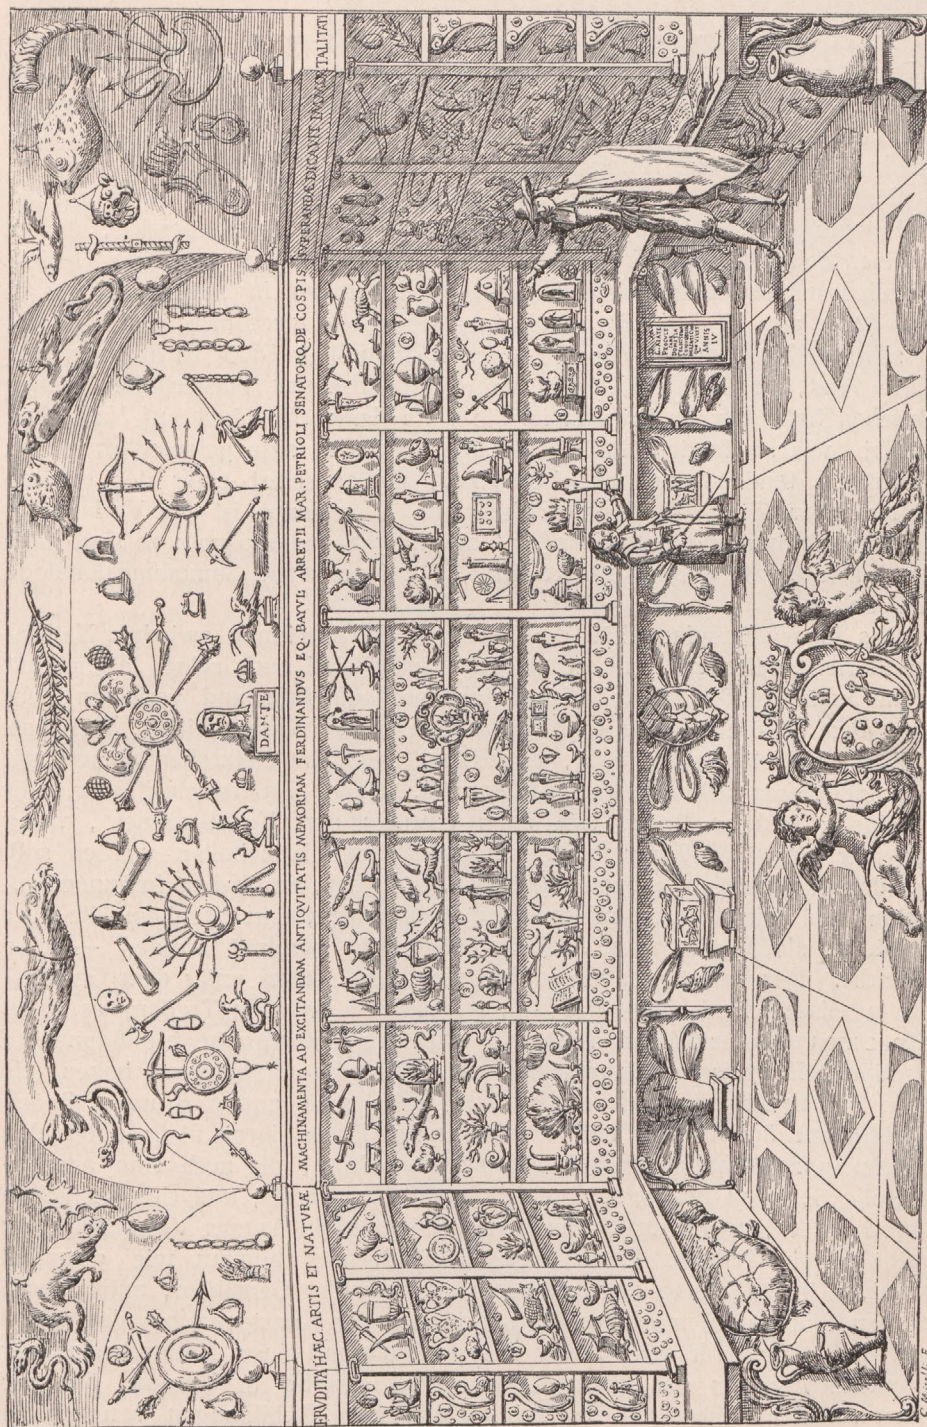 ERVDITA HÆC ARTIS ET NATVRÆ MACHINAMENTA AD EXCITANDAM ANTIQVITATIS MEMORIAM FERDINANDVS EQ. BAIVL: ARRETII MAR. PETRIOLI SENATORQ. DE COSPIS SVPERANDÆ DICAVIT IMMORTALITATI
DANTE
ANNIS
IV